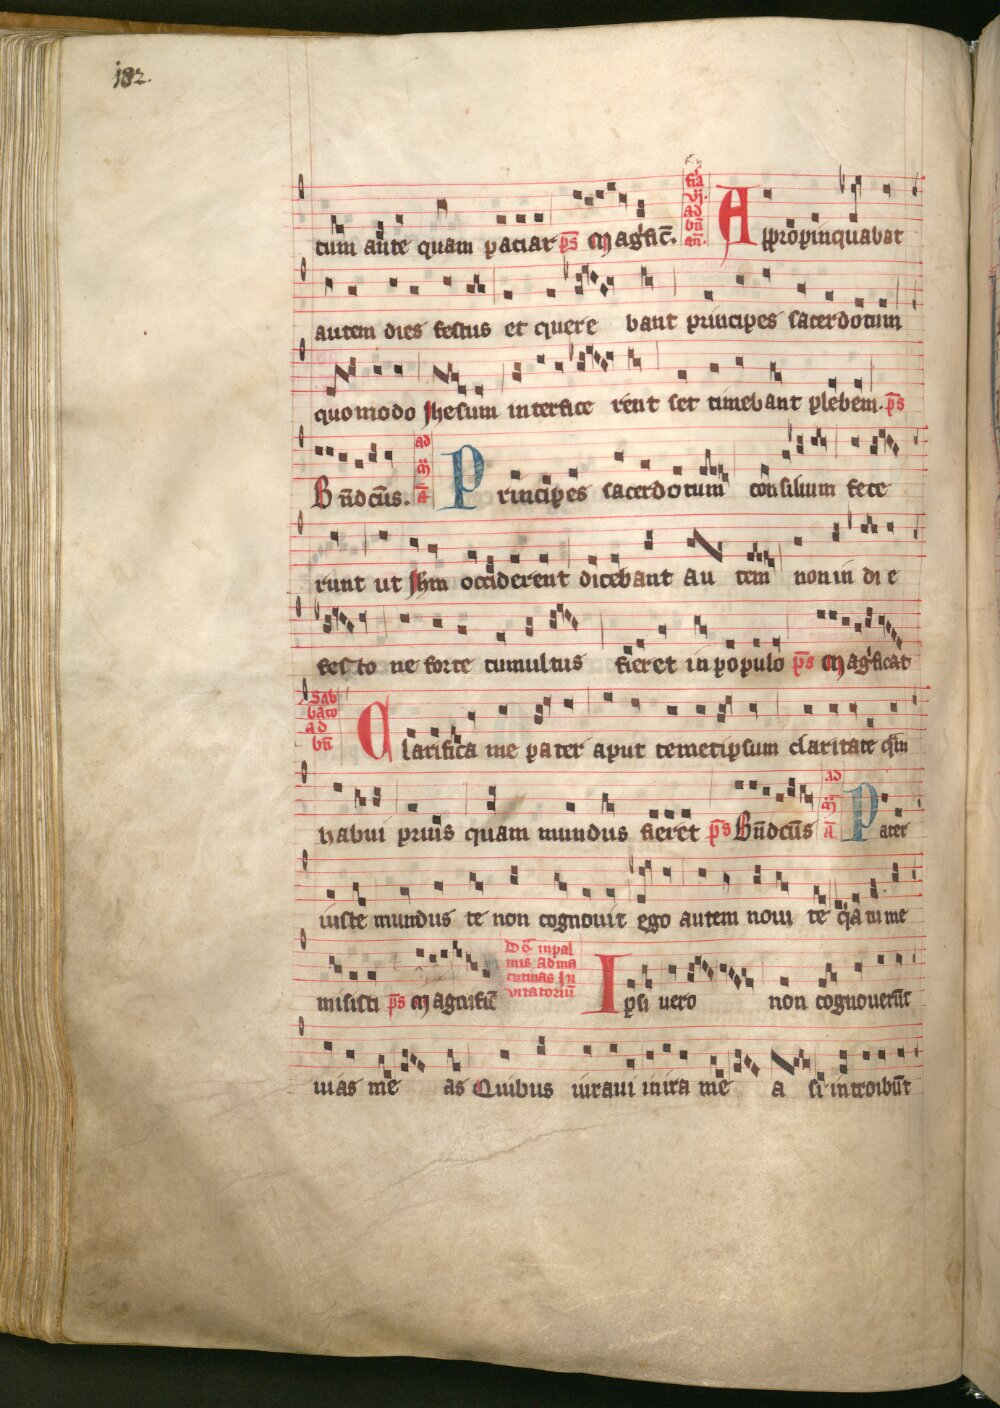 182.
cum ante quam paciar ps̄ Magficͣ. fīa vj. ad bn̄ an̄. Appropinquabat
autem dies festus et quere bant principes sacerdotum
quomodo Jhesum interfice rent set timebant plebem. ps̄
Bn̄dcūs. ad m̄ ā Principes sacerdotum consilium fece
runt ut Jhm occiderent dicebant au tem non in di e
festo ne forte tumultus fieret in populo ps̄ Magficat
Sab bato ad bn̄ Clarifica me pater aput temetipsum claritate qm̄
habui prius quam mundus fieret ps̄ Bn̄dcūs ad m̄ ā Pater
iuste mundus te non cognouit ego autem noui te qia tu me
misisti ps̄ Magnificͣ Dō in pal mis ad ma tutinas In vitatoriū Ipsi uero non cognouerūt
uias me as Quibus iuraui in ira me a si introibūt